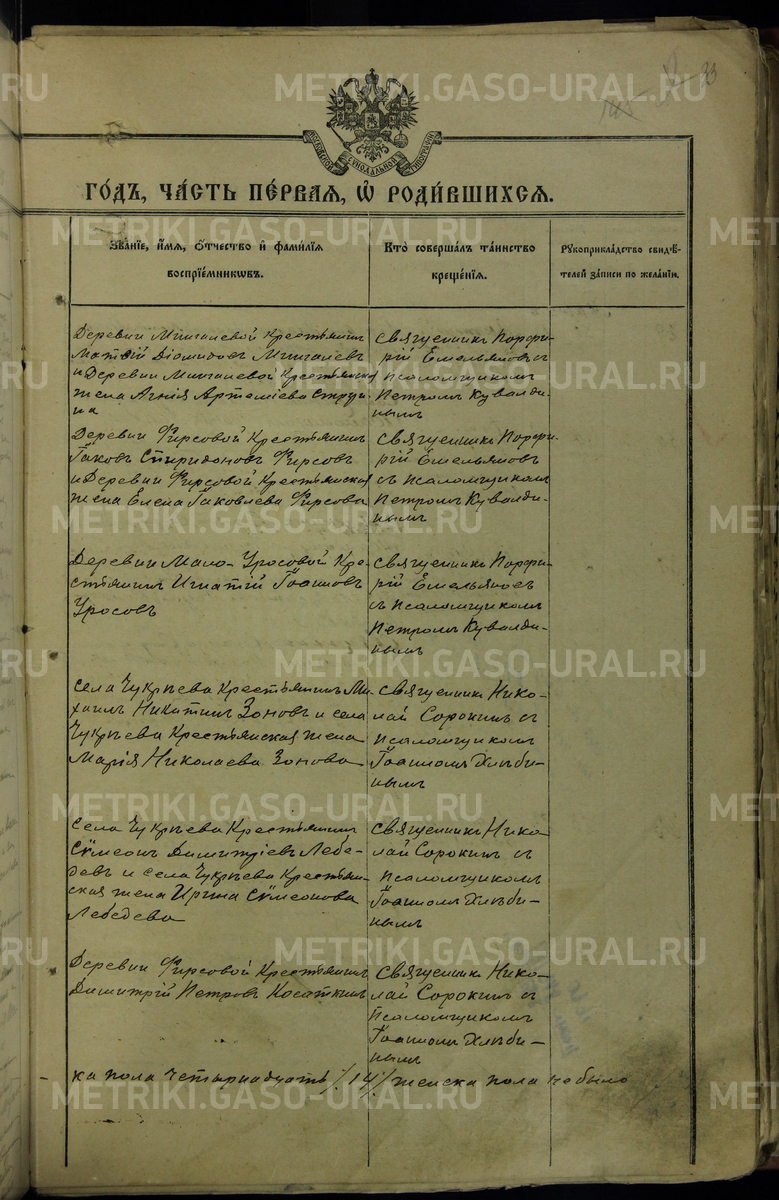 METRIKI.GASO-URAL.RU
33
МОСКОВСКОЙ СУНОДАЛЬНОЙ ТИПОГРАФІИ
ГО́ДЪ, ЧА́СТЬ ПЕ́РВАЯ, Ѡ҆ РОДИ́ВШИХСЯ.
Зва́нїе, и҆́мя, ѻ҆́тчество и҆ фами́лїя
воспрїе́мникѡвъ.
Кто̀ соверша́лъ та́инство
креще́нїя.
Рꙋкоприкла́дство свидѣ́-
телей за́писи по жела́нїю.
Деревни Мингалевой Крестьянинъ
Матѳій Діомидовъ Мингалевъ
и Деревни Мингалевой Крестьянская
жена Агнія Артеміева
Священникъ Порфи-
рій Емельяновъ съ
псаломщикомъ
Петромъ Кувалди-
нымъ
Деревни Фирсовой Крестьянинъ
Іаковъ Спиридоновъ Фирсовъ
и Деревни Фирсовой Крестьянская
жена Елена Іаковлева Фирсова
Священникъ Порфи-
рій Емельяновъ
съ псаломщикомъ
Петромъ Кувалди-
нымъ
Деревни Мало-Уросовой Кре-
стьянинъ Игнатій Іоанновъ
Уросовъ
Священникъ Порфи-
рій Емельяновъ
съ псаломщикомъ
Петромъ Кувалди-
нымъ
Села Чукрѣева Крестьянинъ Ми-
хаилъ Никитинъ Зоновъ и села
Чукрѣева Крестьянская жена
Марія Николаева Зонова
Священникъ Нико-
лай Сорокинъ съ
псаломщикомъ
Іоанномъ Хлѣби-
нымъ
Села Чукрѣева Крестьянинъ
Сѵмеонъ Димитріевъ Лебе-
девъ и села Чукрѣева Крестьян-
ская жена Ирина Сѵмеонова
Лебедева
Священникъ Нико-
лай Сорокинъ съ
псаломщикомъ
Іоанномъ Хлѣби-
нымъ
Деревни Фирсовой Крестьянинъ
Димитрій Петровъ Косаткинъ
Священникъ Нико-
лай Сорокинъ съ
псаломщикомъ
Іоанномъ Хлѣби-
нымъ
ка пола четырнадцать /14/ женска пола не было